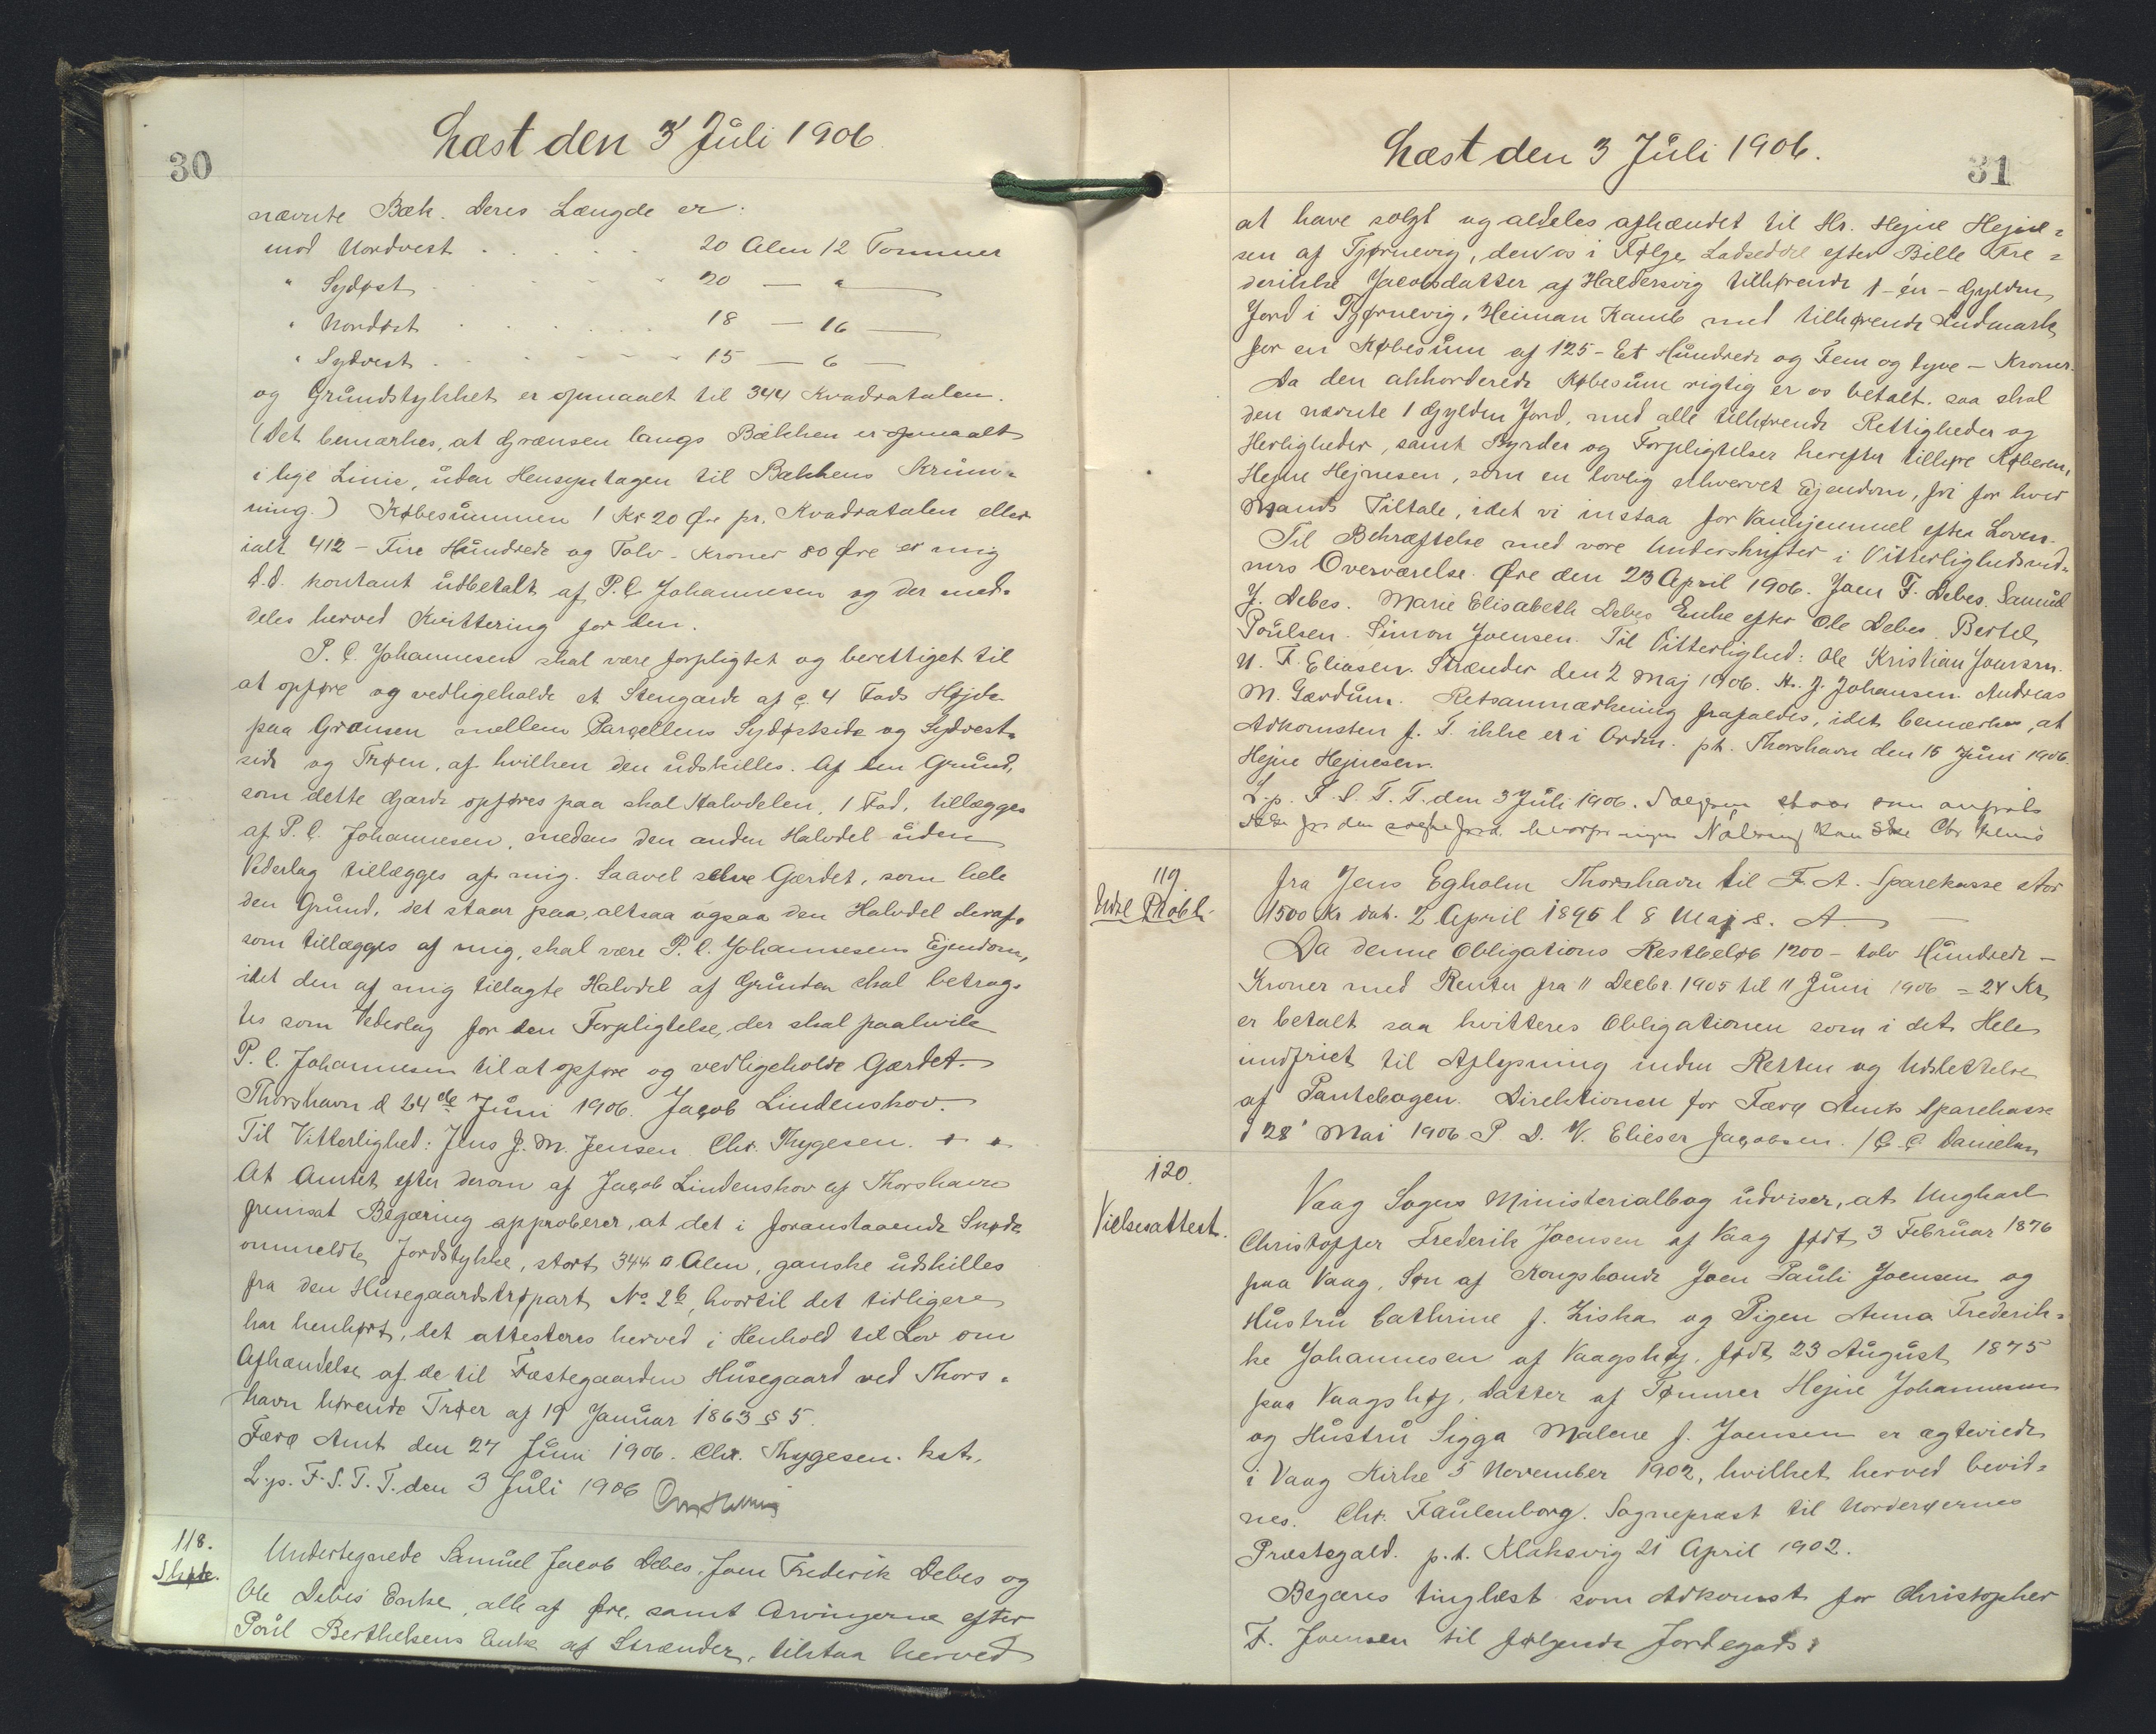 30
Læst den 3 Juli 1906
nævnte Bæk. Deres Længde er:
mod Nordvest . . . . . 20 Alen 12 Tommer
" Sydøst . . . . . 20 — " —
" Nordøst . . . . . 18 — 16 —
" Sydvest . . . . . 15 — 6 —
og Grundstykket er opmaalt til 344 Kvadratalen.
(Det bemærkes, at Grænsen langs Bækken er opmaalt
i lige Linie, uden Hensyntagen til Bækkens Krum=
ning.) Købesummen 1 Kr 20 Øre pr. Kvadratalen eller
ialt 412 - Fire Hundrede og Tolv - Kroner 80 Øre er mig
d.d. kontant udbetalt af P. C. Johannesen og der med=
deles herved Kvittering for den.
P. C. Johannesen skal være forpligtet og berettiget til
at opføre og vedligeholde et Stengærde af c. 4 Fods Højde
paa Grænsen mellem Parcellens Sydøstside og Sydvest=
side og Trøen, af hvilken den udskilles. Af den Grund,
som dette Gærde opføres paa skal Halvdelen, 1 Fod, tillægges
af P. C. Johannesen, medens den anden Halvdel uden
Vederlag tillægges af mig. Saavel selve Gærdet, som hele
den Grund, det staar paa, altsaa ogsaa den Halvdel deraf,
som tillægges af mig, skal være P. C. Johannesens Ejendom,
idet den af mig tillagte Halvdel af Grunden skal betrag=
tes som Vederlag for den Forpligtelse, der skal paahvile
P. C. Johannesen til at opføre og vedligeholde Gærdet.
Thorshavn d 24de Juni 1906. Jacob Lindenskov.
Til Vitterlighed: Jens J. M. Jensen. Chr. Thygesen.
At Amtet efter derom af Jacob Lindenskov af Thorshavn
fremsat Begæring approberer, at det i foranstaaende Skøde
ommeldte Jordstykke, stort 344 □ Alen, ganske udskilles
fra den Husegaardstrøpart No 2b, hvortil det tidligere
har henhørt, det attesteres herved i Henhold til Lov om
Afhændelse af de til Fæstegaarden Husegaard ved Thors=
havn hørende Trøer af 19 Januar 1863 § 5.
Færø Amt den 27 Juni 1906. Chr. Thygesen. kst.
L.p. F. S. T. T. den 3 Juli 1906
118.
Skøde.
Undertegnede Samuel Jacob Debes, Joen Frederik Debes og
Ole Debes Enke, alle af Øre, samt Arvingerne efter
Poul Berthelsens Enke af Strænder, tilstaa herved
31
Læst den 3 Juli 1906.
at have solgt og aldeles afhændet til Hr. Hejne Hejne=
sen af Tjørnevig, den os i Følge Lodseddel efter Bille Fre=
derikke Jacobsdatter af Haldersvig tilhørende 1 - én - Gylden
Jord i Tjørnevig, Heiman Kamb med tilhørende Indmark
for en Købesum af 125 - Et Hundrede og Fem og tyve - Kroner.
Da den akkorderede Købesum rigtig er os betalt, saa skal
den nævnte 1 Gylden Jord, med alle tilhørende Rettigheder og
Herligheder, samt Byrder og Forpligtelser herefter tilhøre Køberen,
Hejne Hejnesen, som en lovlig erhvervet Ejendom, fri for hver
Mands Tiltale, idet vi indstaa for Vanhjemmel efter Loven.
Til Bekræftelse med vore Underskrifter i Vitterlighedsvid=
ners Overværelse. Øre den 23 April 1906. Joen F. Debes. Samuel
J. Debes. Marie Elisabeth Debes Enke efter Ole Debes. Bertel
Poulsen. Simon Joensen. Til Vitterlighed: Ole Kristian Joensen.
N. F. Eliasen. Strænder den 2 Maj 1906. H. J. Johansen. Andreas
M. Gærdum. Retsanmærkning frafaldes, idet bemærkes, at
Adkomsten f. T. ikke er i Orden. pt. Thorshavn den 15 Juni 1906.
Hejne Hejnesen.
L.p. F. S. T. T. den 3 Juli 1906.
119
Udsl. Pr.obl.
fra Jens Egholm Thorshavn til F. A. Sparekasse stor
1500 Kr dat. 2 April 1896 l 8 Maj s. A.
Da denne Obligations Restbeløb 1200 - tolv Hundrede -
Kroner med Renter fra 11 Decbr. 1905 til 11 Juni 1906 = 24 Kr
er betalt saa kvitteres Obligationen som i det Hele
indfriet til Aflysning inden Retten og Udslettelse
af Pantebogen. Direktionen for Færø Amts Sparekasse
d 28' Mai 1906. P. D. V. Elieser Jacobsen. / C. C. Danielsen
120.
Vielsesattest.
Vaag Sogns Ministerialbog udviser, at Ungkarl
Christoffer Frederik Joensen af Vaag født 3 Februar 1876
paa Vaag, Søn af Kongsbonde Joen Pauli Joensen og
Hustru Cathrine f. Ziska og Pigen Anna Frederik=
ke Johannesen af Vaagshøj, født 23 August 1875
paa Vaagshøj, Datter af Tømrer Hejne Johannesen
og Hustru Sigga Malene f. Joensen er ægteviede
i Vaag Kirke 5 November 1902, hvilket herved bevid=
nes. Chr. Faulenborg. Sognepræst til Norderøernes
Præstegæld. p.t. Klaksvig 21 April 1902.
Begæres tinglæst som Adkomst for Christopher
F. Joensen til følgende Jordegods: